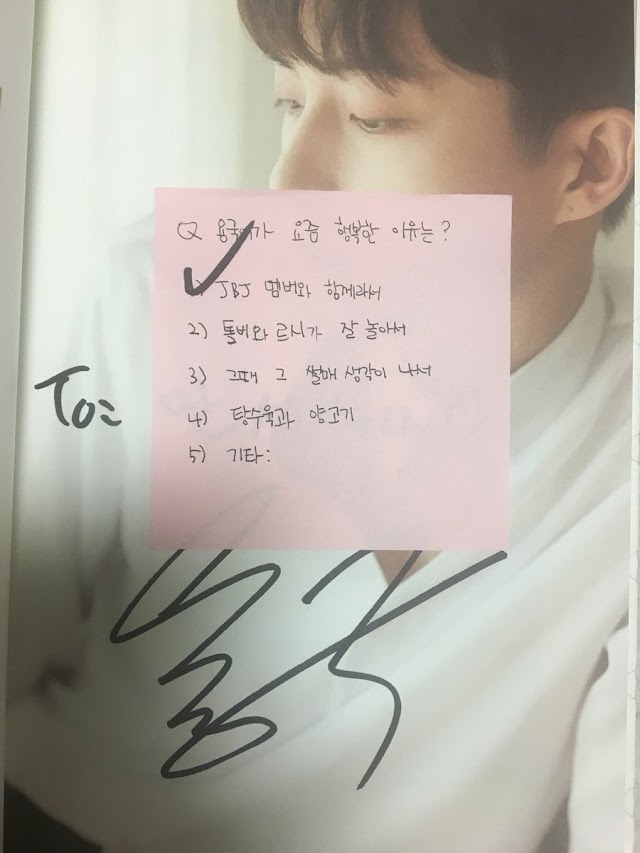 Q 용국이가 요즘 행복한 이유는?
✓ JBJ 멤버와 함께라서
2) 톨비와 르시가 잘 놀아서
3) 그때 그 썰매 생각이 나서
4) 탕수육과 양고기
5) 기타:
To: